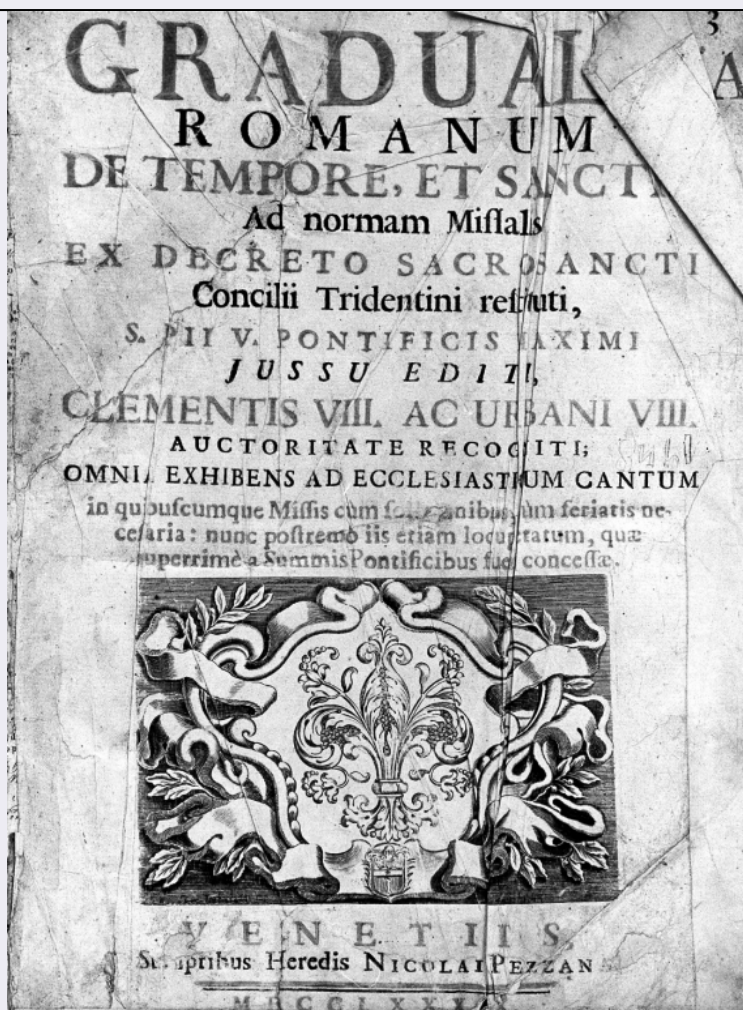 3
GRADUAL
A
ROMANUM
DE TEMPORE, ET SANCTI
Ad normam Miſſals
EX DECRETO SACROSANCTI
Concilii Tridentini reſtituti,
S. PII V. PONTIFICIS MAXIMI
JUSSU EDITI,
CLEMENTIS VIII. AC URBANI VIII.
AUCTORITATE RECOGNITI;
OMNIA EXHIBENS AD ECCLESIASTICUM CANTUM
in quibuſcumque Miſſis cum ſolemnibus, tum feriatis ne-
ceſſaria: nunc poſtremò iis etiam quæ
nuperrimè a Summis Pontificibus conceſſæ.
VENETIIS,
Heredis NICOLAI PEZZAN